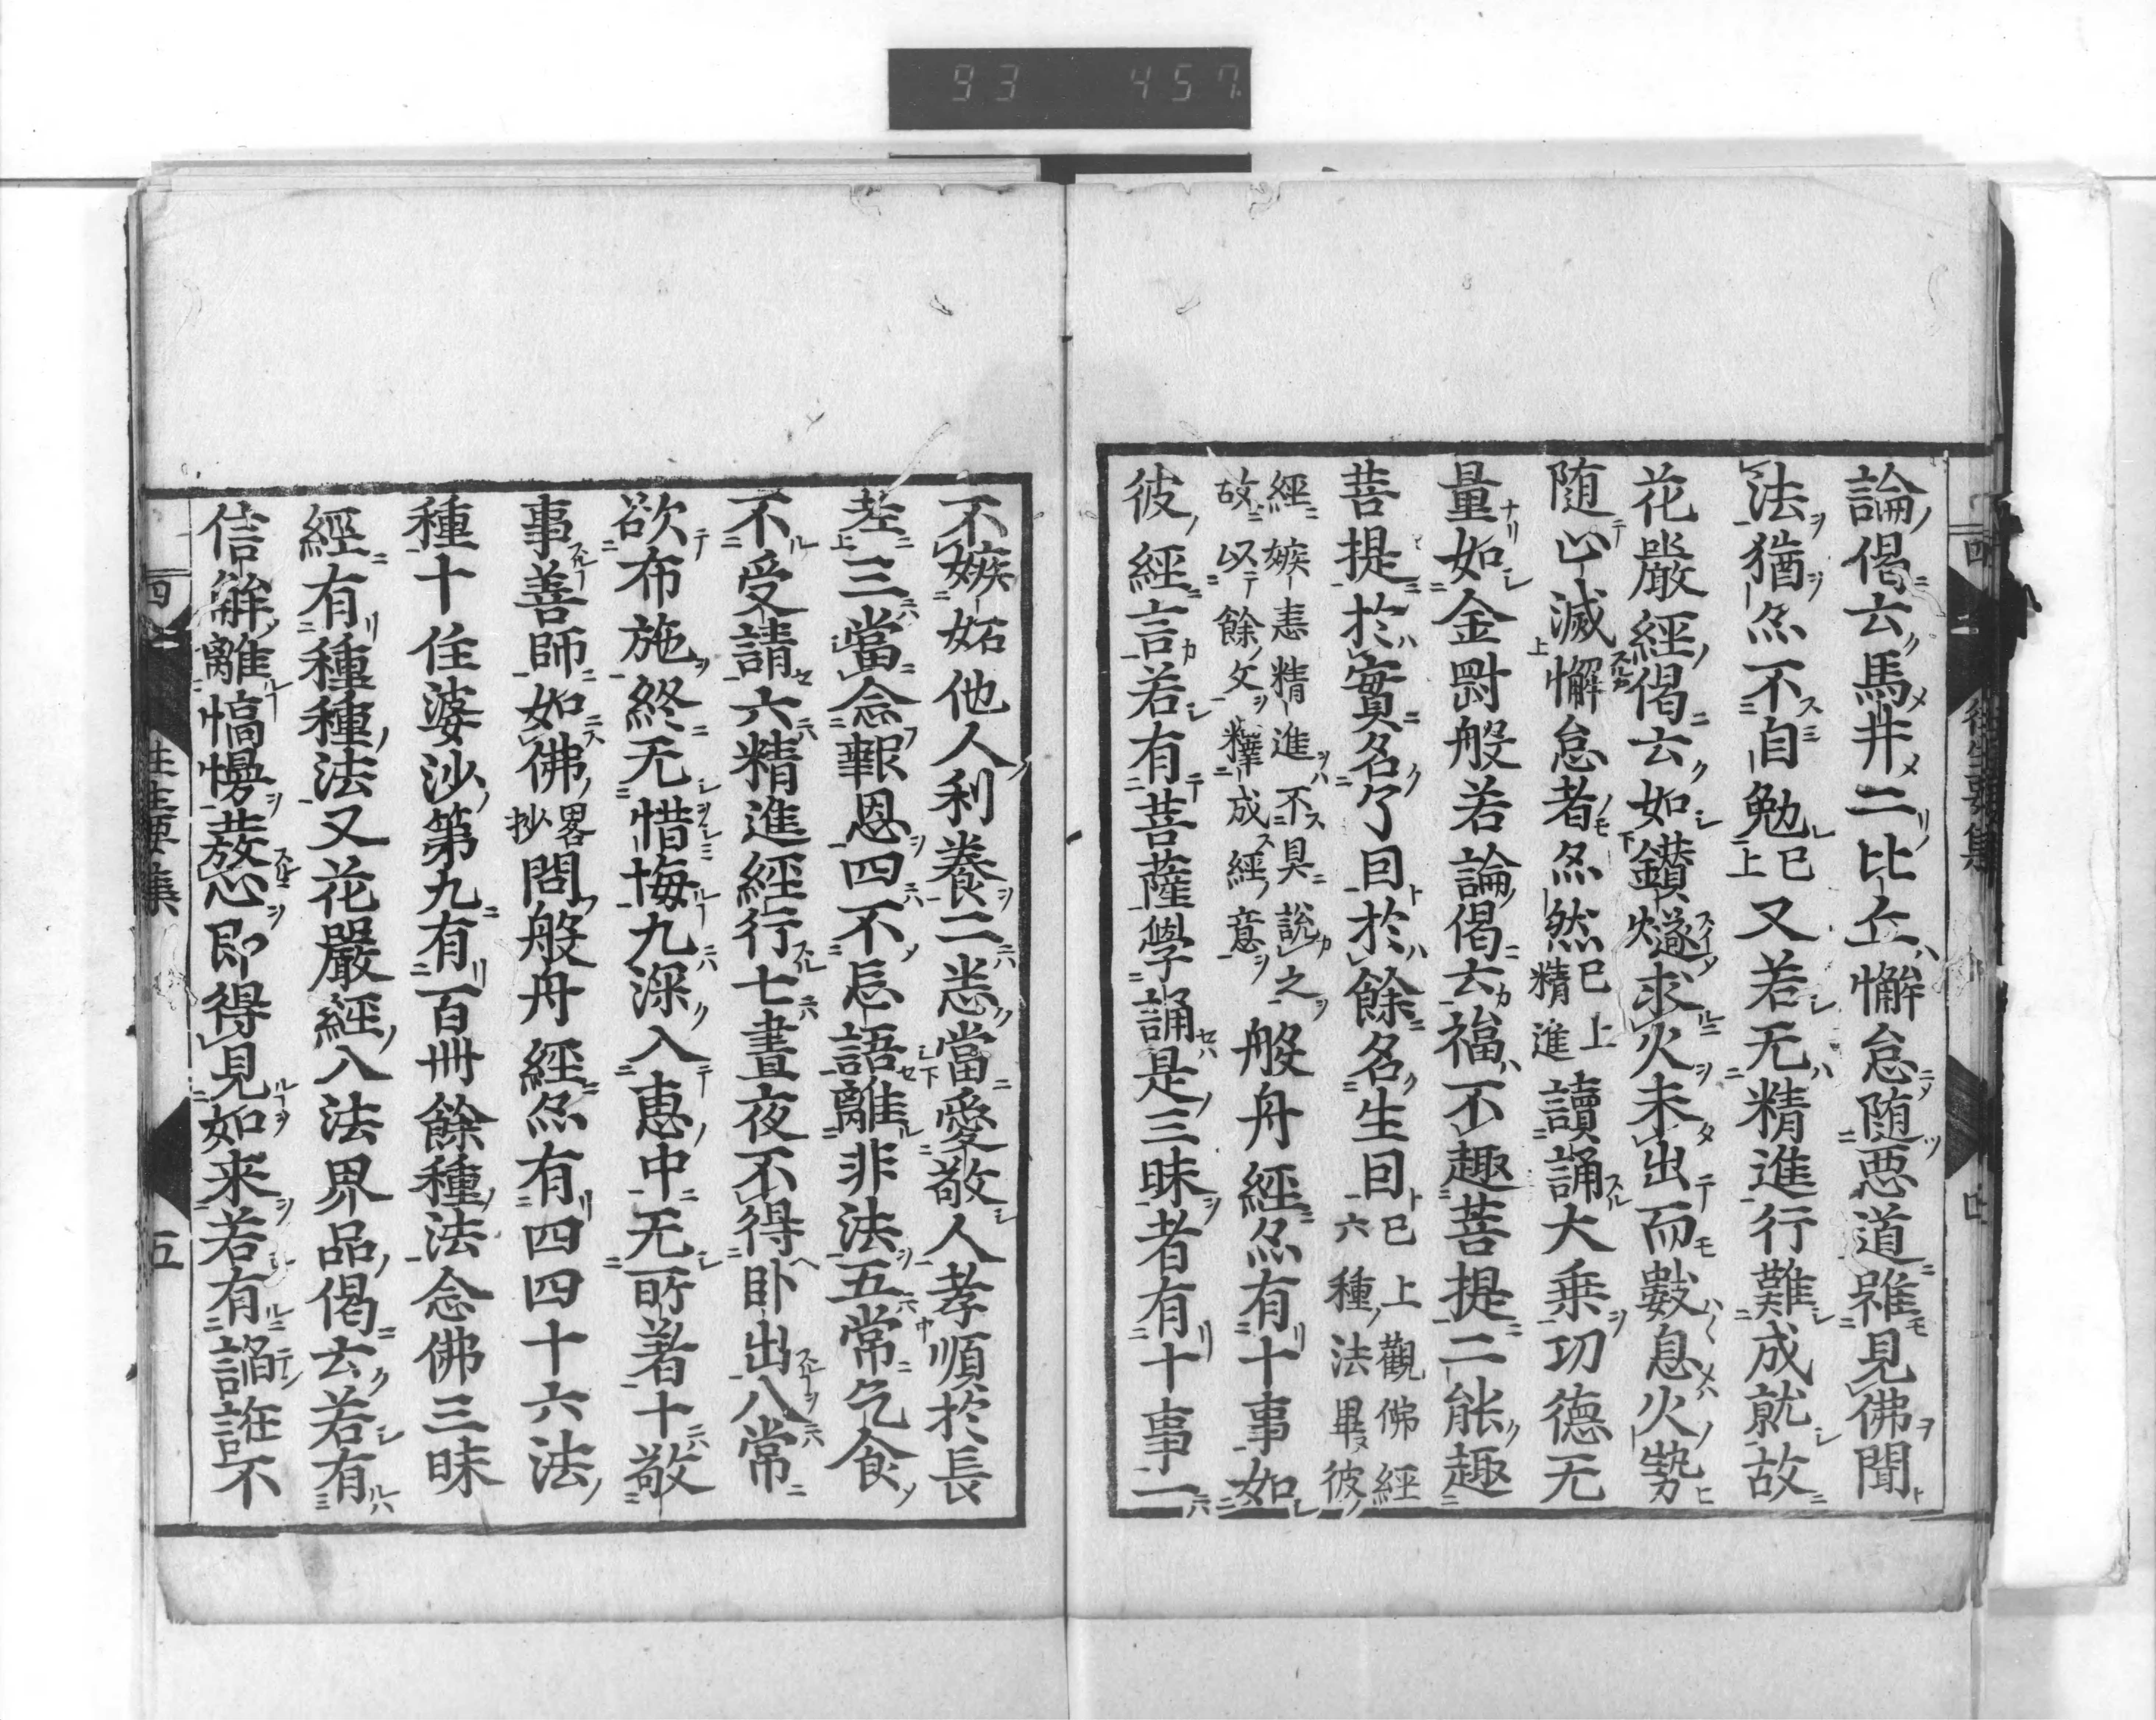 93 457
論偈云馬井二比丘懈怠随悪道雖見佛聞
法猶尒不自勉已上又若无精進行難成就故
花嚴經偈云如鑚燧求火未出而數息火勢
随止滅懈怠者尒然已上精進讀誦大乗功德无
量如金剛般若論偈云福不趣菩提二能趣
菩提於實名了因於餘名生因已上觀佛經六種法畢彼
經嫉恚精進不具説之故以餘文釋成經意般舟經尒有十事如
彼經言若有菩薩學誦是三昧者有十事一
不嫉妬他人利養二悉當愛敬人孝順於長
老三當念報恩四不忘語離非法五常乞食
不受請六精進經行七晝夜不得臥出八常
欲布施終无惜悔九深入惠中无所著十敬
事善師如佛畧抄問般舟經尒有四四十六法
種十住婆沙第九有百卌餘種法念佛三昧
經有種種法又花嚴經入法界品偈云若有
信解離憍慢發心即得見如来若有諂誑不
四
往生要集
五
四
往生要集
四